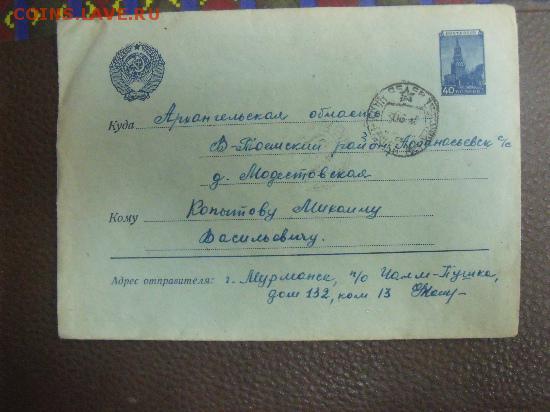 COINS.LAVE.RU
40 КОПЕЕК
Куда Архангельская область
В-Тоемский район Афанасьевск с/с
д. Модестовская
Кому Копытову Михаилу
Васильевичу.
Адрес отправителя: г. Мурманск, п/о Чалм-Пушка,
дом 132, ком 13